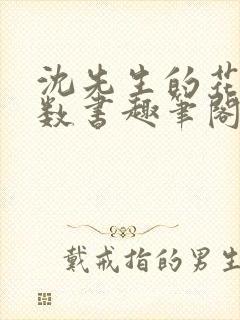 沈先生的花
数书趣笔阁
戴戒指的男生